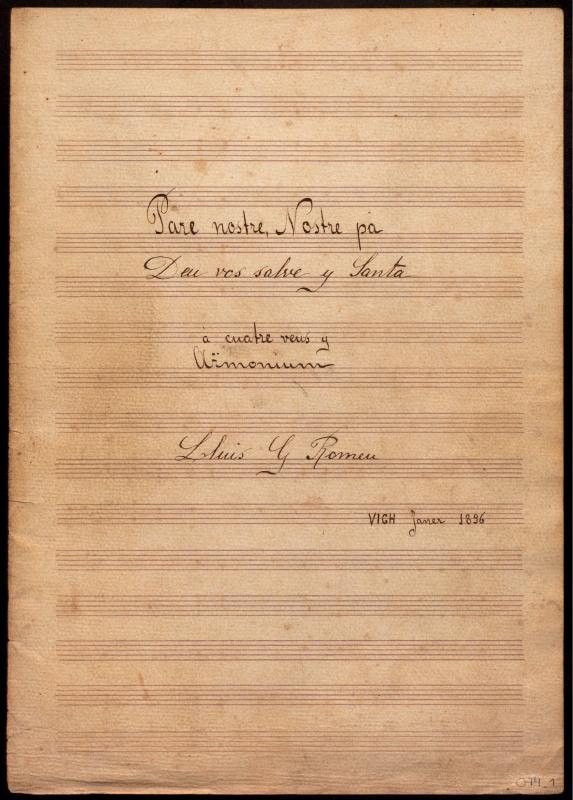 Pare nostre, Nostre pa
Deu vos salve y Santa
à cuatre veus y
Armonium
Lluis G Romeu
VICH Janer 1896